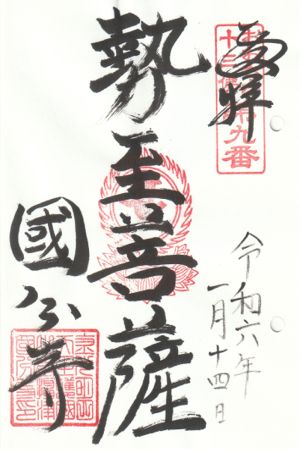 奉拝
十三佛第九番
勢至菩薩
國分寺
令和六年
一月十四日